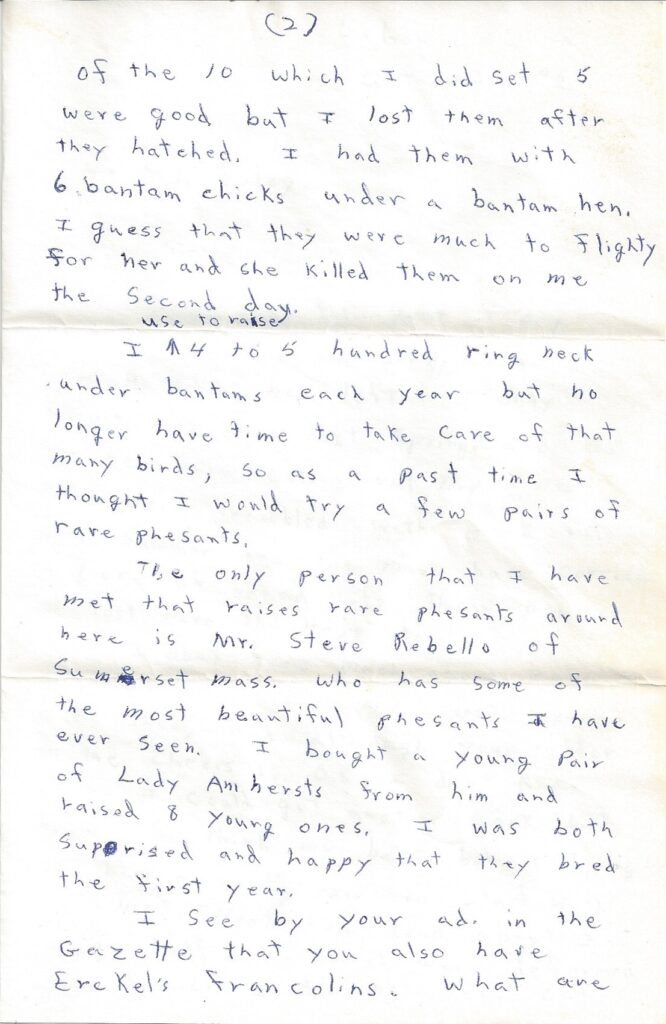 (2)
of the 10 which I did set 5
were good but I lost them after
they hatched. I had them with
6 bantam chicks under a bantam hen.
I guess that they were much to flighty
for her and she killed them on me
the second day.
use to raise
I ↑ 4 to 5 hundred ring neck
under bantams each year but no
longer have time to take care of that
many birds, so as a past time I
thought I would try a few pairs of
rare phesants.
The only person that I have
met that raises rare phesants around
here is Mr. Steve Rebello of
Sumerset mass. who has some of
the most beautiful phesants I have
ever seen. I bought a young Pair
of Lady Amhersts from him and
raised 8 young ones. I was both
Suprised and happy that they bred
the first year.
I see by your ad. in the
Gazette that you also have
Erckel's Francolins. What are